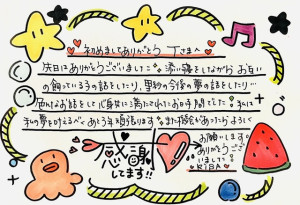 初めましてありがとう Tさまへ
先日はありがとうございました♡ 添い寝をしながら お互い
の飼っている子の話をしたり、 の今後の夢の話をしたり…
お話をして 満たされたお時間でした♡ 私は
私の夢を叶えるべくあと 年頑張ります また機会があったらよろしく
お願いします♡
感謝
してます!!
ありがとうござ
いました♡